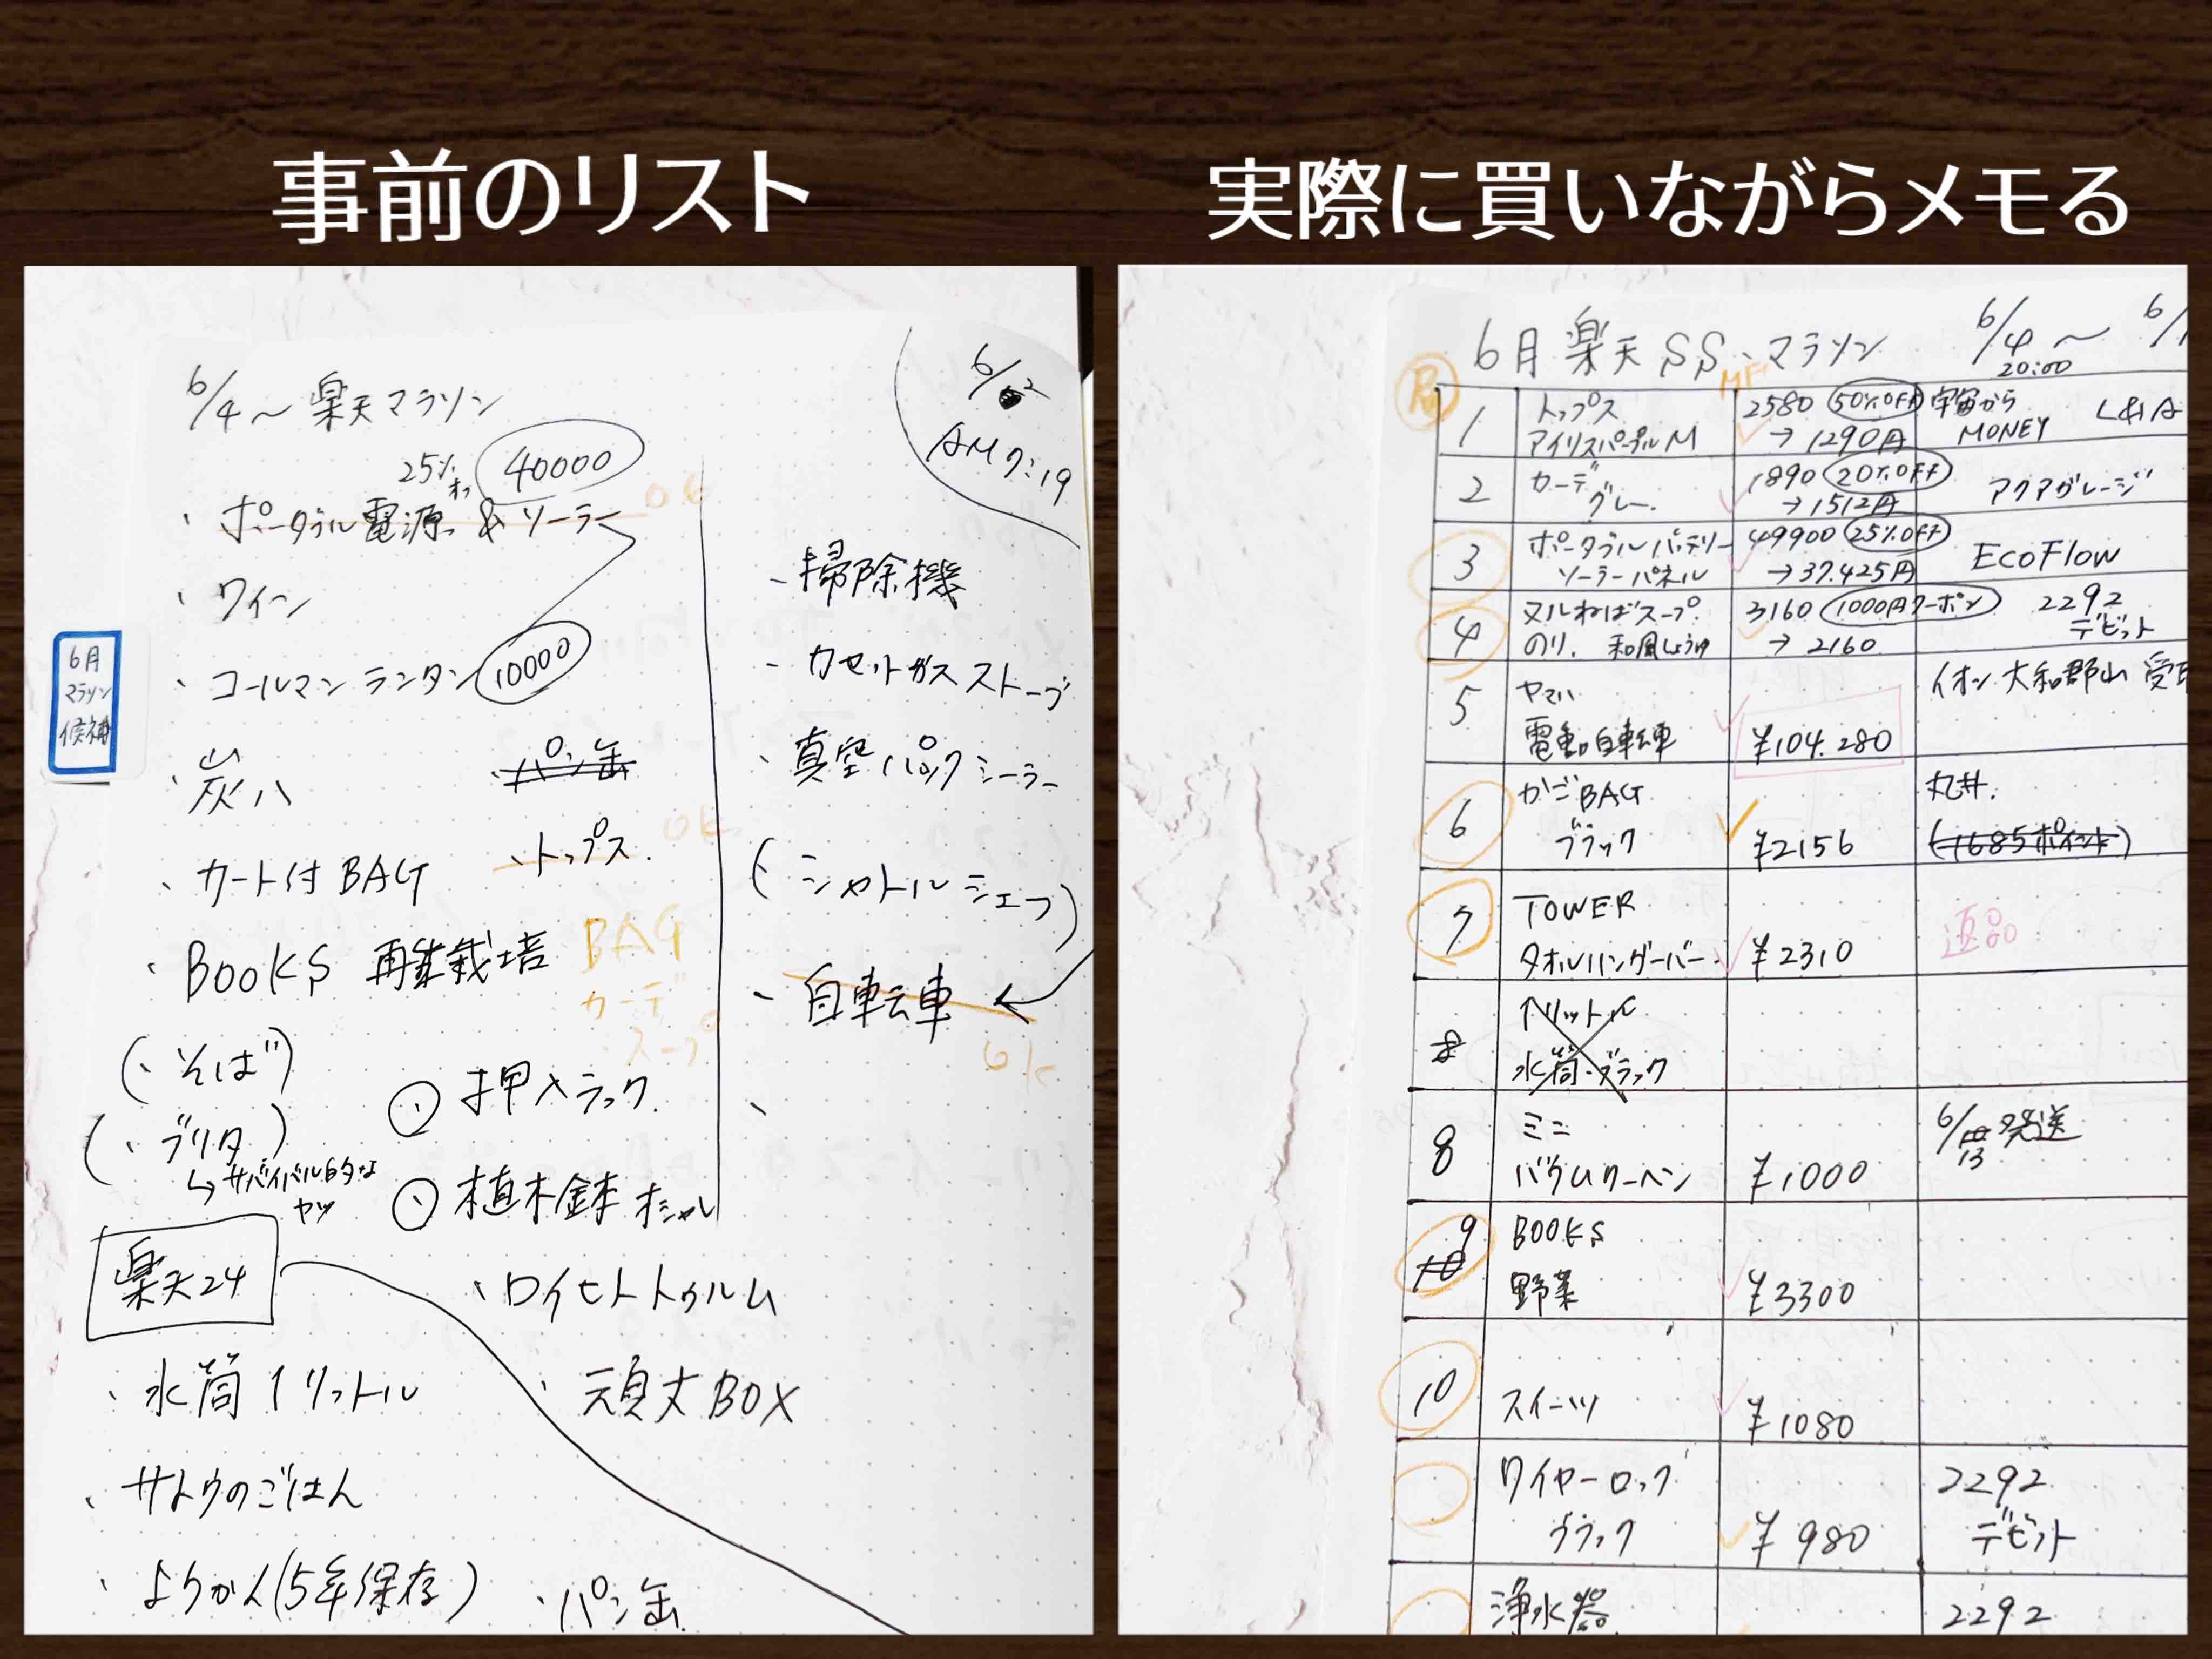 事前のリスト
6/4〜楽天マラソン
25%オフ 40000
・ポータブル電源 & ソーラー OK
・ワイン
・コールマン ランタン 10000
・炭八
・パン缶
・カート付BAG
・トップス OK
・BOOKS 再生栽培
BAG
カーデ
スープ
(・そば)
(・ブリタ)
↳サバイバル的な
ヤツ
・押入ラック
・植木鉢 オシャレ
楽天24
・ロイヒトトゥルム
・水筒1リットル
・頑丈BOX
・サトウのごはん
・ようかん(5年保存)
・パン缶
6/2
AM7:19
・掃除機
・カセットガスストーブ
・真空パックシーラー
(・シャトルシェフ)
・自転車 ←
OK
6月
マラソン
候補
実際に買いながらメモる
6月楽天SS・マラソン 6/4〜 6/1
20:00
MF
1 トップス 2580 50%OFF 宇宙から L&A
アイリスパープルM →1290円 MONEY
2 カーデ 1890 20%OFF アクアグレージ
グレー →1512円
3 ポータブルバッテリー 49900 25%OFF EcoFlow
ソーラーパネル →37.425円
4 ヌルねばスープ 3160 1000円クーポン 2292
のり、和風しょうゆ →2160 デビット
5 ヤマハ イオン大和郡山 受取
電動自転車 ¥104.280
6 かごBAG 丸井.
ブラック ¥2156 (1685ポイント)
7 TOWER
タオルハンガーバー ¥2310 返品
8 1リットル
水筒・ブラック
8 ミニ 6/13 発送
バウムクーヘン ¥1000
9 10 BOOKS
野菜 ¥3300
10 スイーツ ¥1080
ワイヤーロック 2292
ブラック ¥980 デビット
浄水器 2292